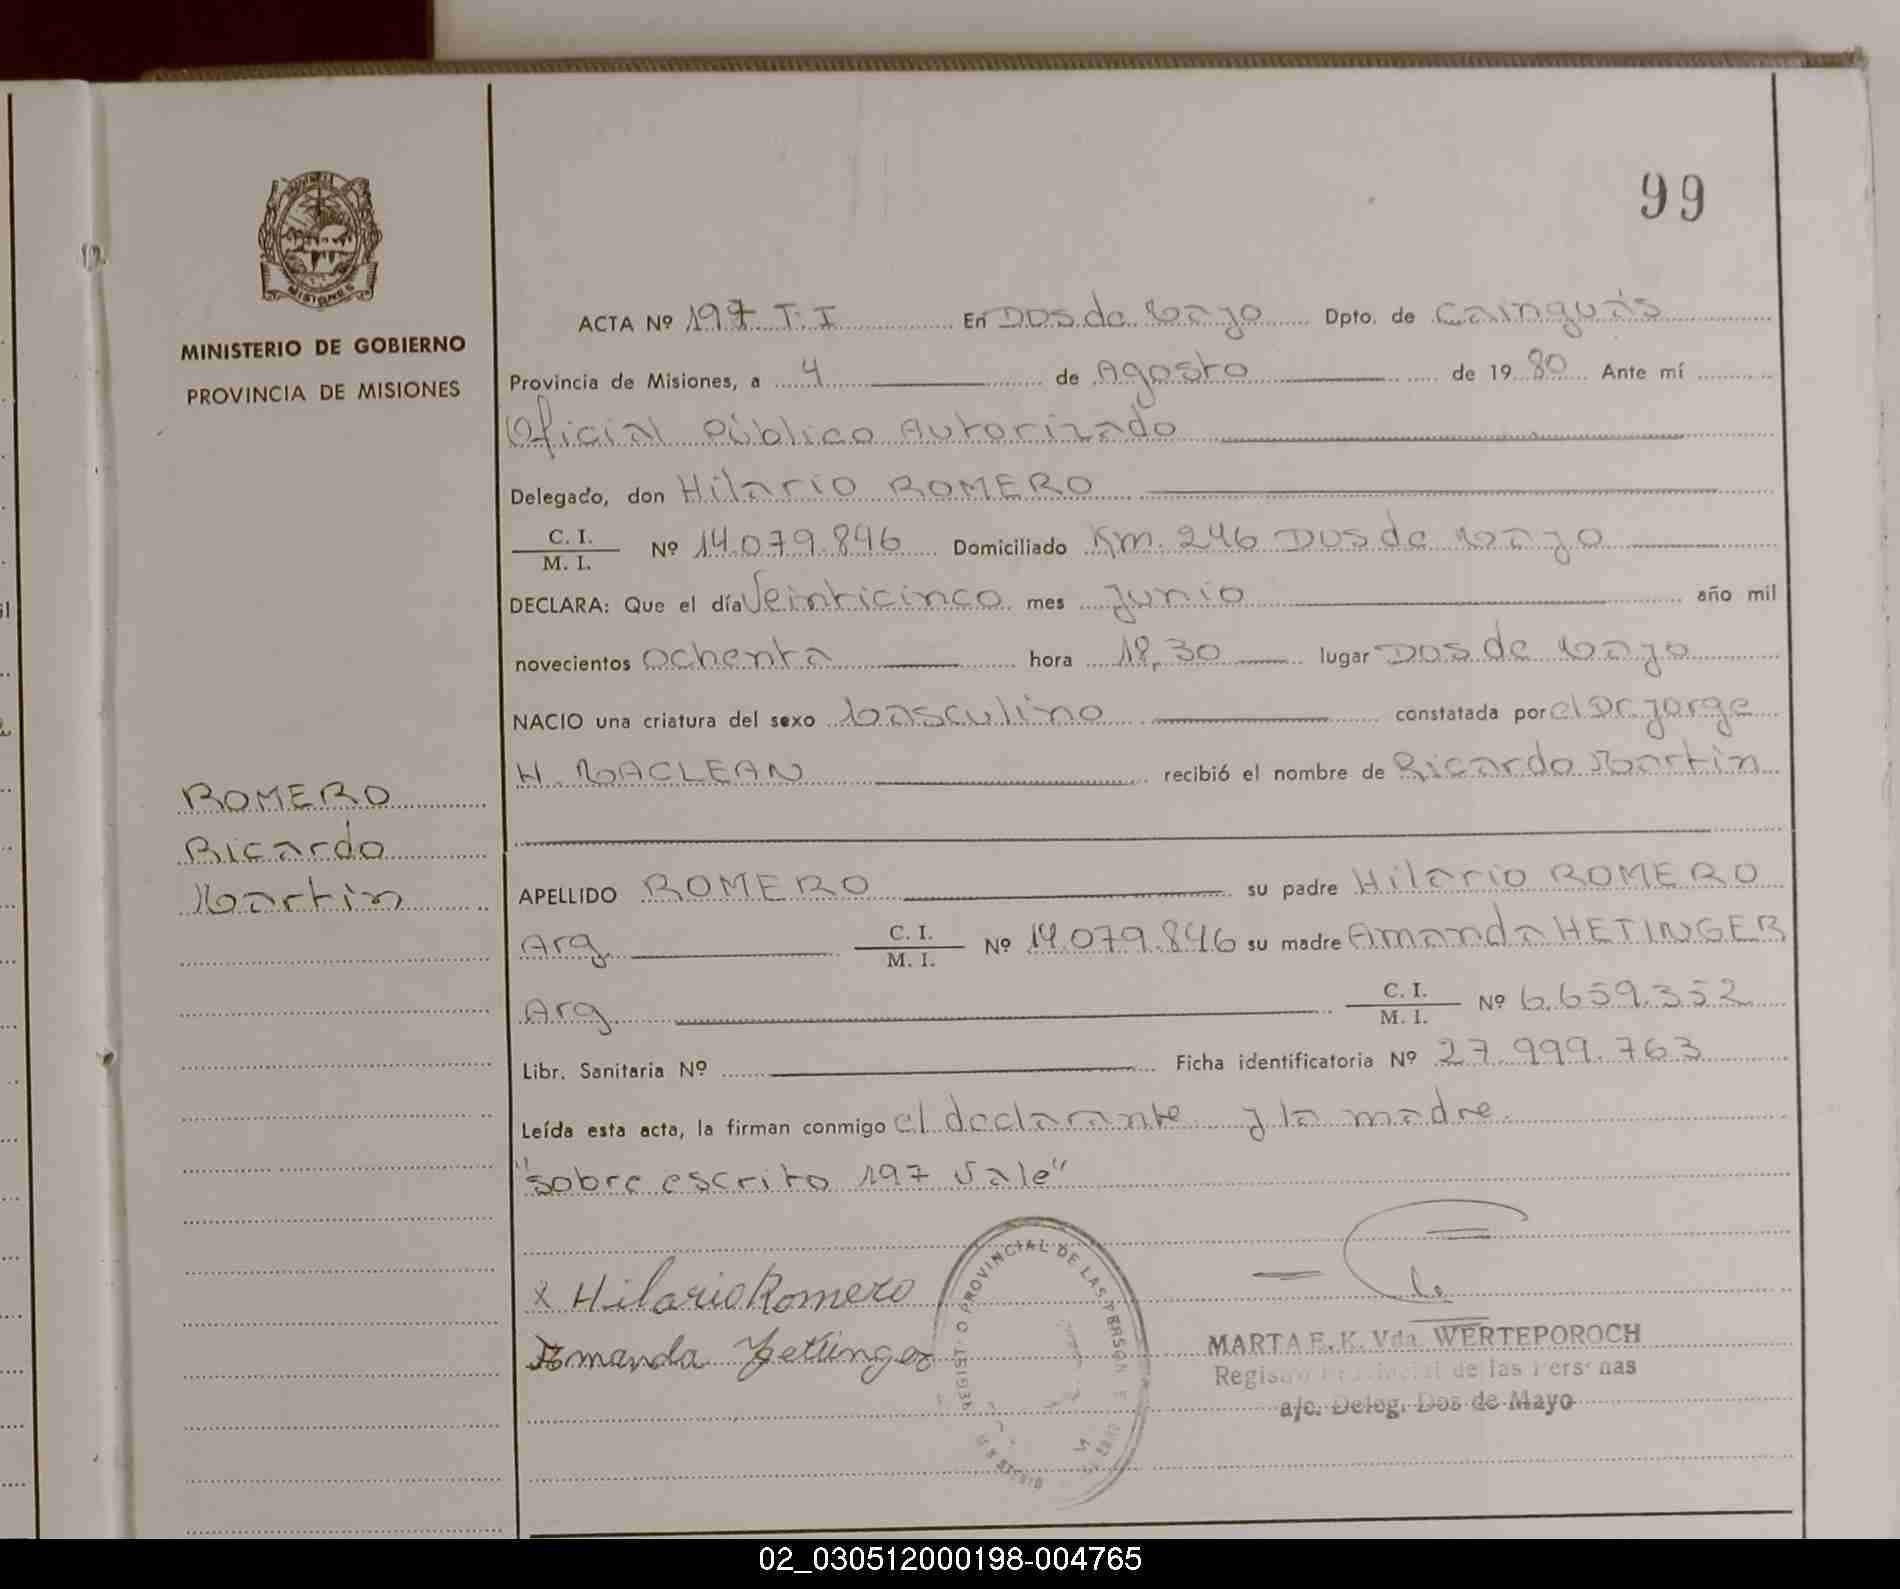 99
MISIONES
MINISTERIO DE GOBIERNO
PROVINCIA DE MISIONES
ROMERO
Ricardo
Martin
ACTA Nº 197 T.I En Dos de Mayo Dpto. de Cainguás
Provincia de Misiones, a 4 de Agosto de 1980 Ante mí
Oficial Público Autorizado
Delegado, don Hilario ROMERO
C. I.
M. I. Nº 14.079.846 Domiciliado Km. 246 Dos de Mayo
DECLARA: Que el día Veinticinco mes junio año mil
novecientos ochenta hora 18,30 lugar Dos de Mayo
NACIO una criatura del sexo Masculino constatada por el Dr. Jorge
H. MACLEAN recibió el nombre de Ricardo Martin
APELLIDO ROMERO su padre Hilario ROMERO
Arg C. I. M. I. Nº 14.079.846 su madre Amanda HETINGER
Arg C. I. M. I. Nº 6.659.352
Libr. Sanitaria Nº Ficha identificatoria Nº 27.999.763
Leída esta acta, la firman conmigo el declarante y la madre.
"sobre escrito 197 vale"
x Hilario Romero
Amanda Hettinger
O PROVINCIAL DE LAS PERSON
MARTA E. K. Vda. WERTEPOROCH
Registro Provincial de las Personas
a/c. Deleg. Dos de Mayo
02_030512000198-004765